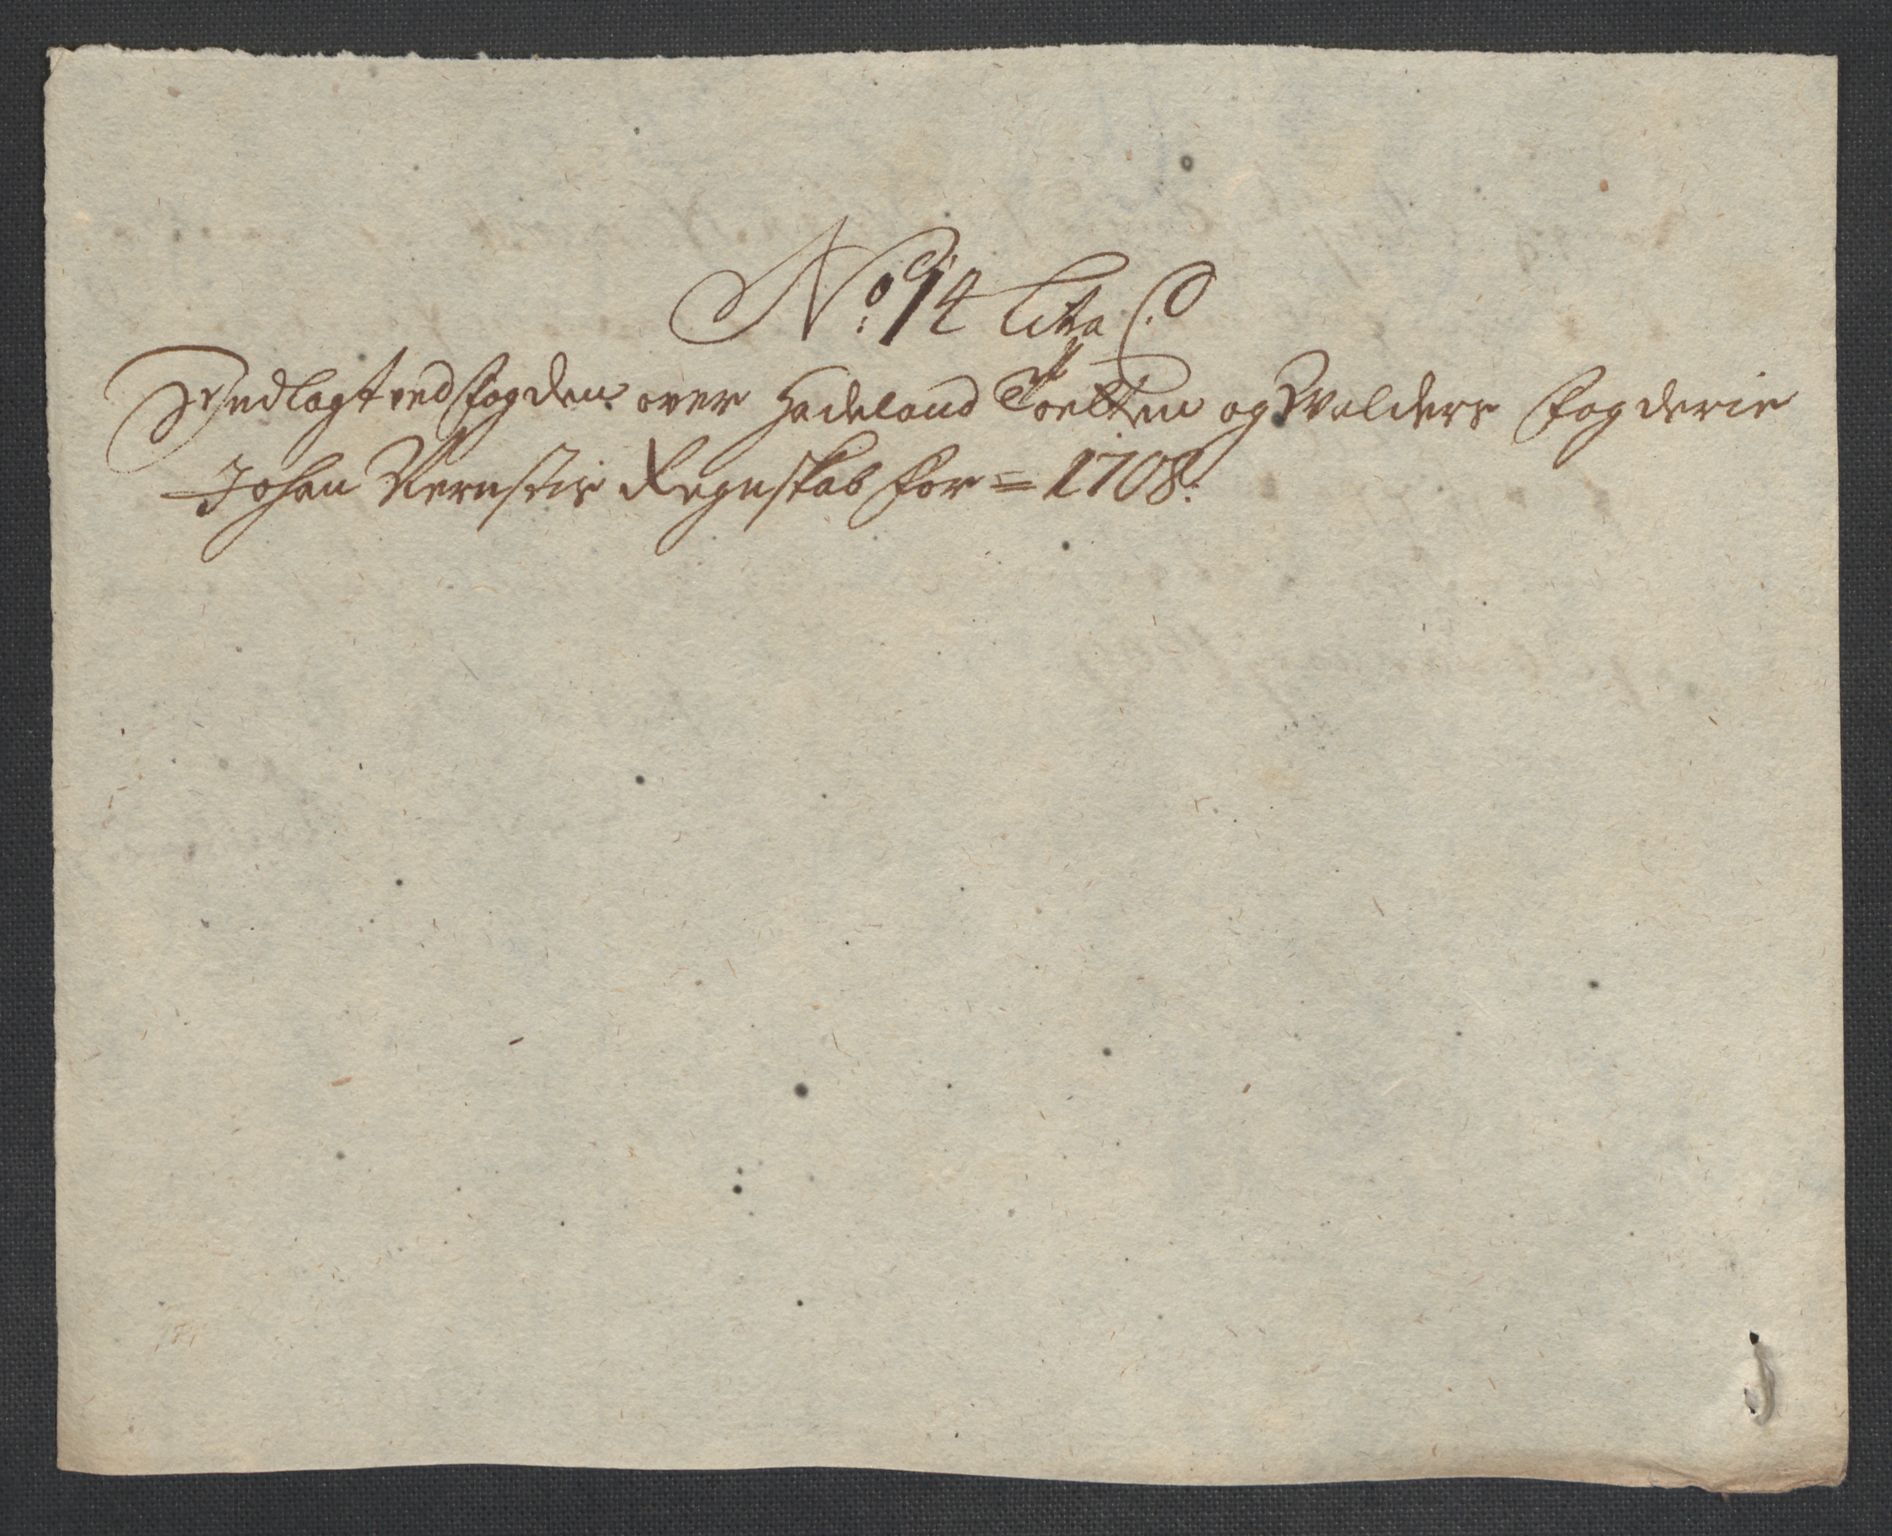 No: 14 Litra C.
Indlagt ved Fogden over Hadeland Toelten og Walders Fogderie
Johan Rernstis Regnskab for = 1708.